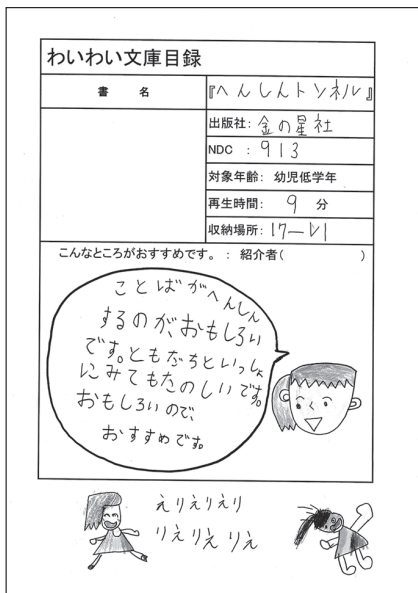 わいわい文庫目録
書 名
『へんしんトンネル』
出版社: 金の星社
NDC : 913
対象年齢: 幼児低学年
再生時間: 9 分
収納場所: 17-レ1
こんなところがおすすめです。 : 紹介者( )
ことばがへんしん
するのが、おもしろい
です。ともだちといっしょ
にみてもたのしいです。
おもしろいので、
おすすめです。
えりえりえり
りえりえりえ